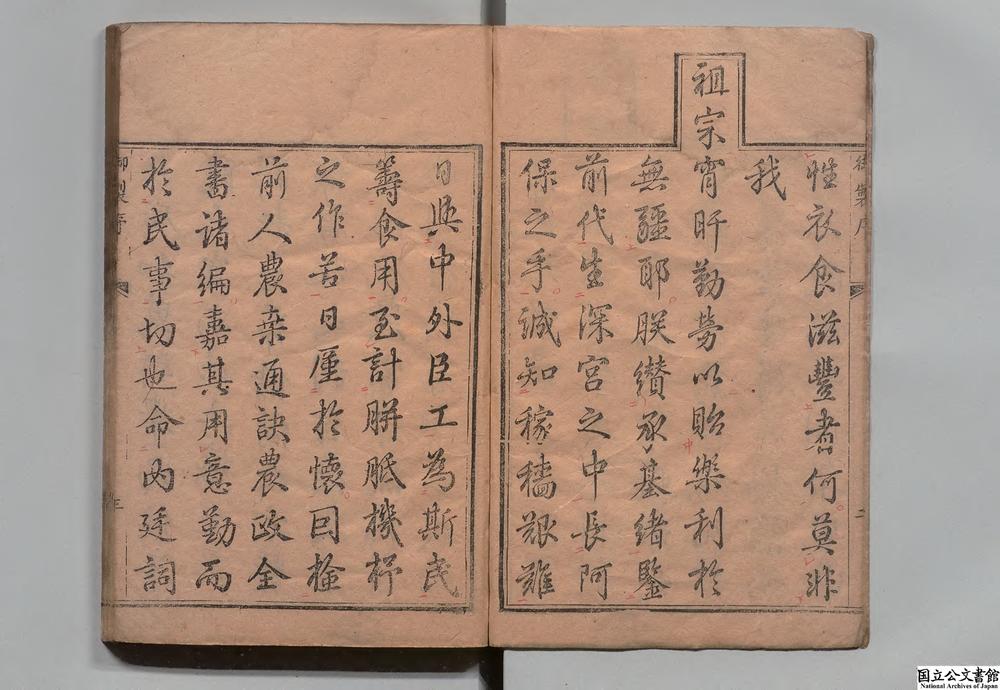 性衣食滋豐者何莫非
我
祖宗宵旰勤勞以貽樂利於
無疆耶朕纘承基緒鑒
前代生深宮之中長阿
保之手誠知稼穡艱難
日與中外臣工為斯民
籌食用至計胼胝機杼
之作苦日厪於懷囙檢
前人農桒通訣農政全
書諸編嘉其用意勤而
於民事切也命內廷詞
御製序
二
御製序
三
国立公文書館
National Archives of Japan